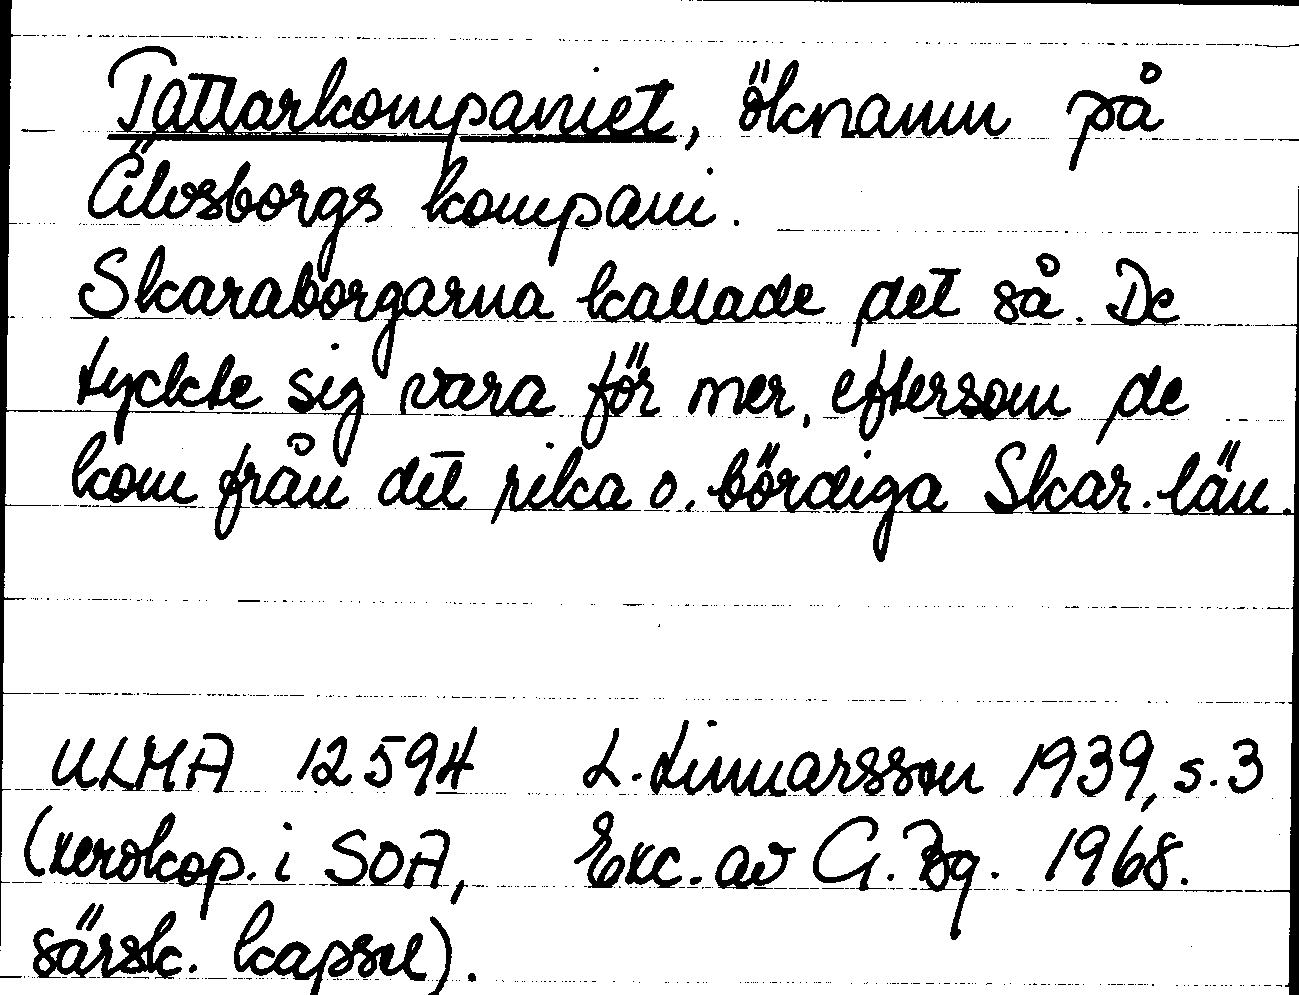 Tattarkompaniet, öknamn på
Älvsborgs kompani.
Skaraborgarna kallade det så. De
tyckte sig vara för mer, eftersom de
kom från det rika o. bördiga Skar. län.
ULMA 12594 L. Linnarsson 1939, s. 3
(xerokop. i SOA, Exc. av G. Bg. 1968.
särsk. kapsel).